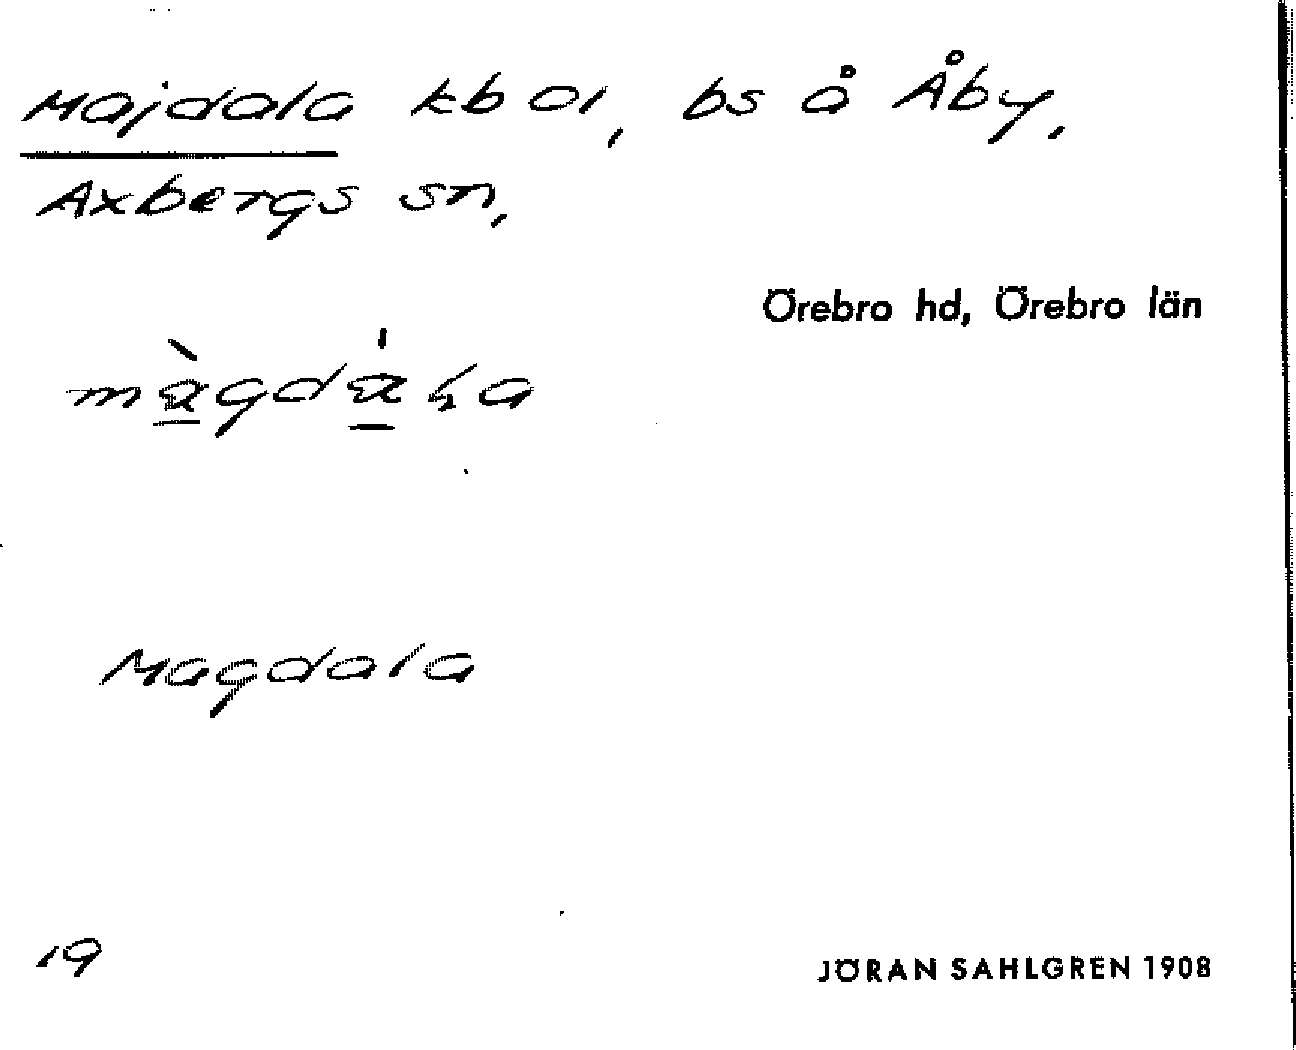 Majdala kbol, bs å Åby,
Axbergs sn,
Örebro hd, Örebro län
Magdala
19
JÖRAN SAHLGREN 1908